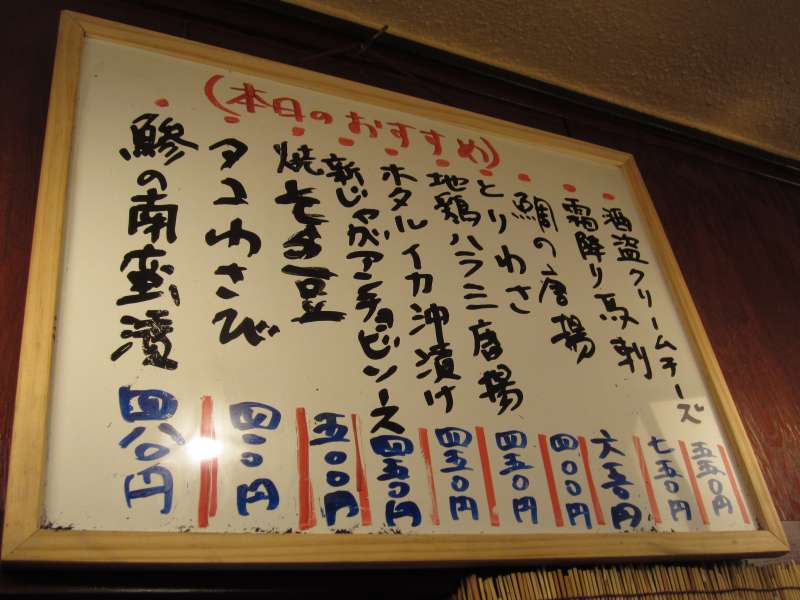 (本日のおすすめ)
酒盗クリームチーズ 五五〇円
霜降り馬刺 七五〇円
鯛の唐揚 六五〇円
とりわさ 四〇〇円
地鶏ハラミ唐揚 四五〇円
ホタルイカ沖漬け 四五〇円
新じゃがアンチョビソース 四五〇円
焼そら豆 五〇〇円
タコわさび
鯵の南蛮漬 四八〇円